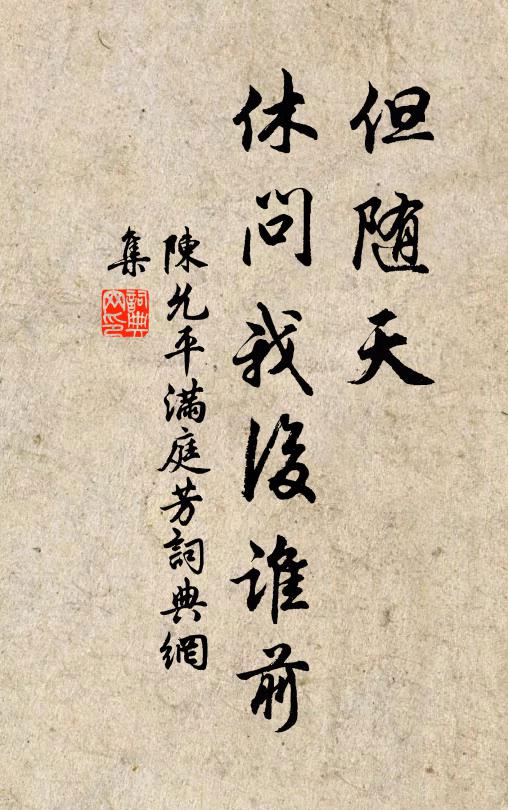 但随天
休問我後誰前
陳允平滿庭芳詞典網
集
詞典網印